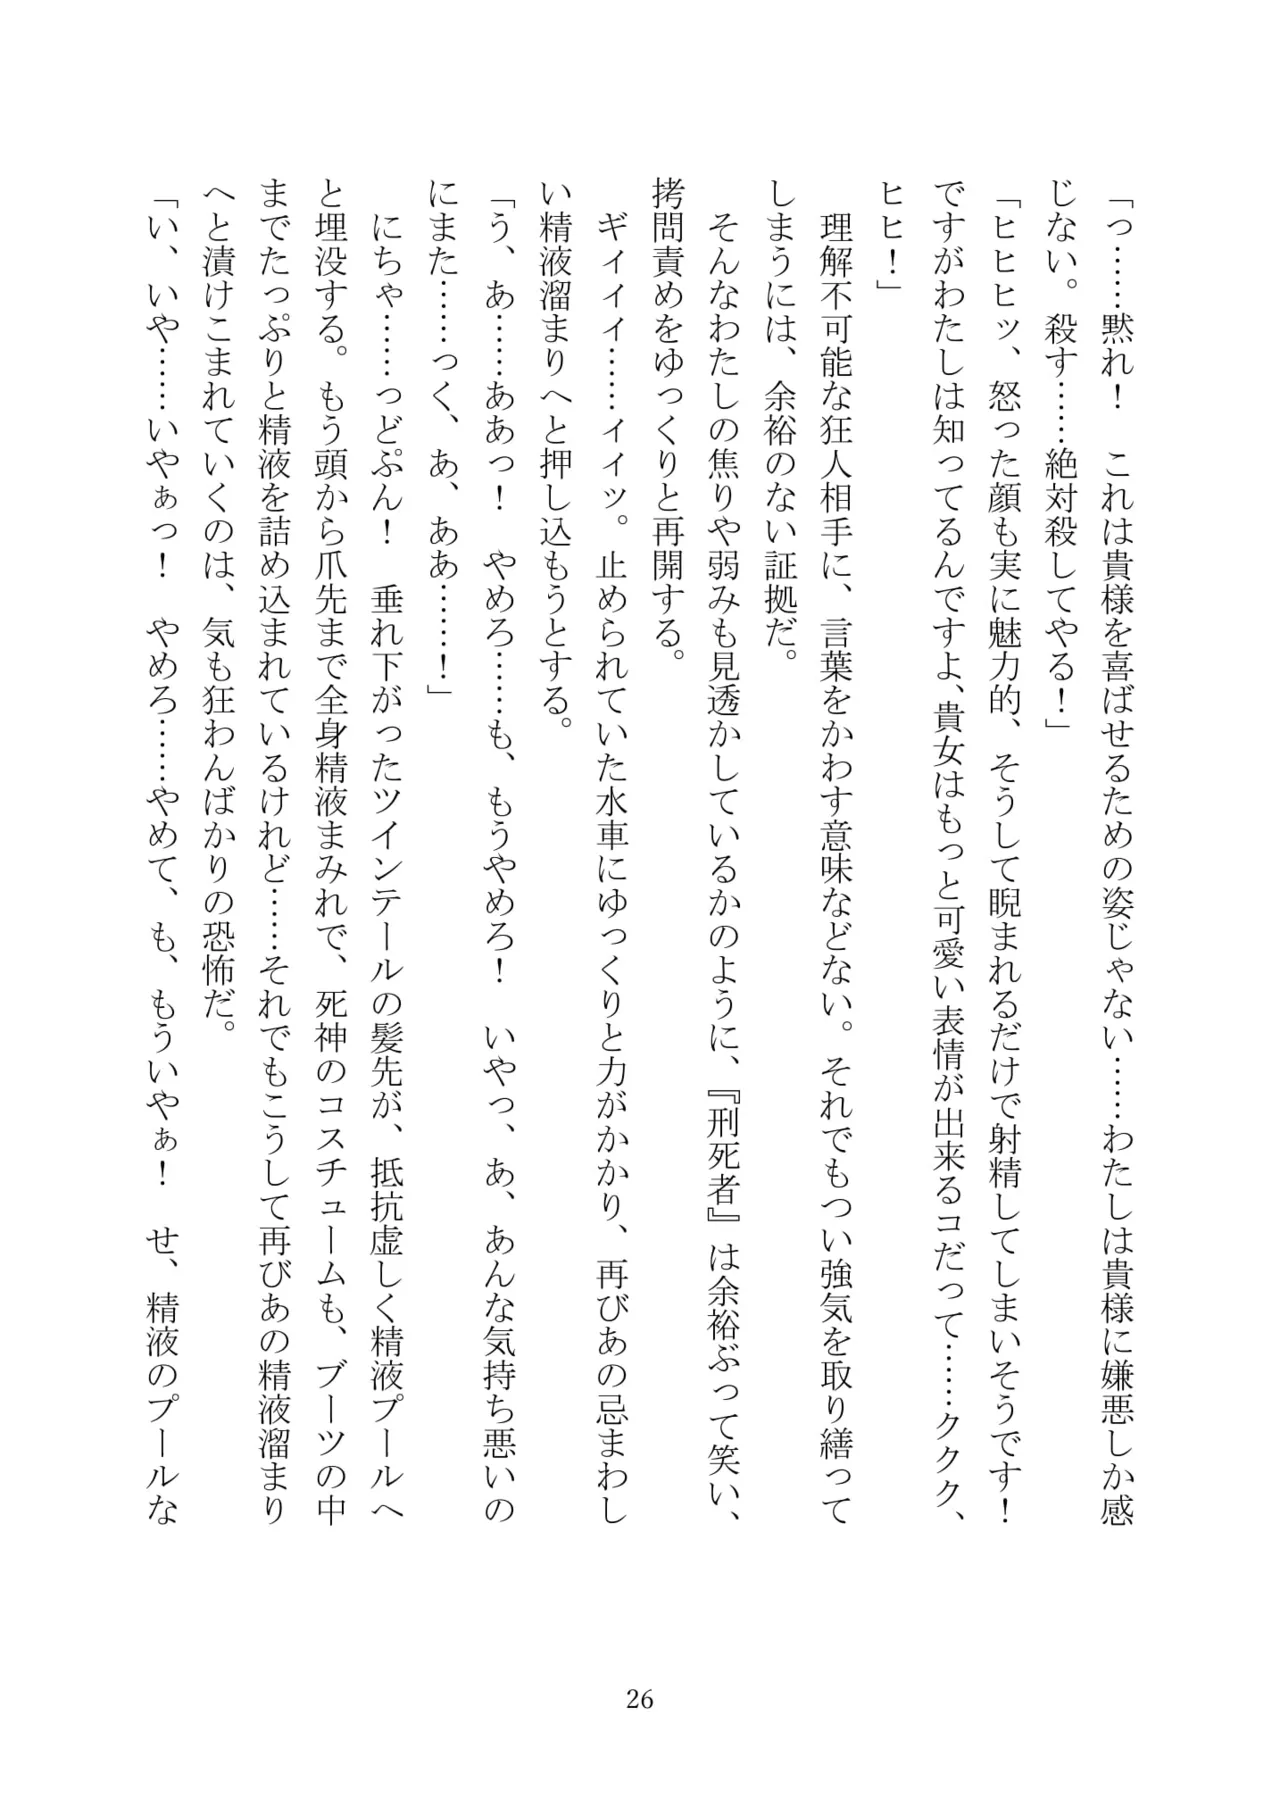 「っ……黙れ！　これは貴様を喜ばせるための姿じゃない……わたしは貴様に嫌悪しか感
じない。殺す……絶対殺してやる！」
「ヒヒヒッ、怒った顔も実に魅力的、そうして睨まれるだけで射精してしまいそうです！
ですがわたしは知ってるんですよ、貴女はもっと可愛い表情が出来るコだって……ククク、
ヒヒ！」
　理解不可能な狂人相手に、言葉をかわす意味などない。それでもつい強気を取り繕って
しまうには、余裕のない証拠だ。
　そんなわたしの焦りや弱みも見透かしているかのように、『刑死者』は余裕ぶって笑い、
拷問責めをゆっくりと再開する。
　ギィィィ……ィィッ。止められていた水車にゆっくりと力がかかり、再びあの忌まわし
い精液溜まりへと押し込もうとする。
「う、あ……ああっ！　やめろ……も、もうやめろ！　いやっ、あ、あんな気持ち悪いの
にまた……っく、あ、ああ……！」
　にちゃ……っどぷん！　垂れ下がったツインテールの髪先が、抵抗虚しく精液プールへ
と埋没する。もう頭から爪先まで全身精液まみれで、死神のコスチュームも、ブーツの中
までたっぷりと精液を詰め込まれているけれど……それでもこうして再びあの精液溜まり
へと漬けこまれていくのは、気も狂わんばかりの恐怖だ。
「い、いや……いやぁっ！　やめろ……やめて、も、もういやぁ！　せ、精液のプールな
26